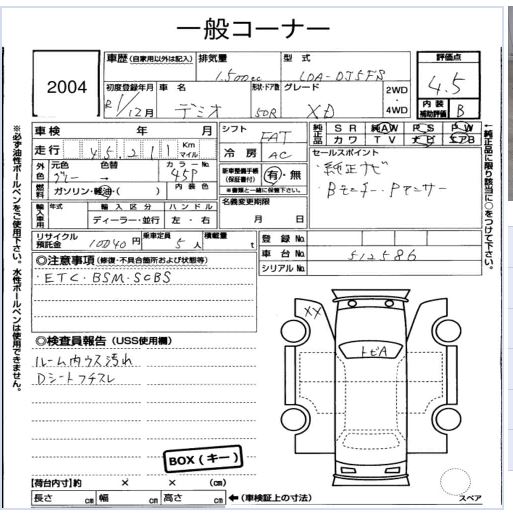 一般コーナー
2004
車歴 (自家用以外は記入) 排気量 型式 評価点
1,500cc LDA-DJ5FS 4.5
初度登録年月 車名 形状・ドア数 グレード 2WD・4WD 内装補助評価
R1/12月 デミオ 5DR XD B
※必ず油性ボールペンをご使用下さい。水性ボールペンは使用できません。
車検 年 月 シフト FAT 純正品 SR 純AW PS PW
カワ TV ナビ エアB
走行 45,211 Km マイル 冷房 AC セールスポイント
・純正ナビ
・Bモニター・Pセンサー
外色 元色 色替 カラーNo. 45P
グレー → 内装色
新車整備手帳 (保証書付) 有・無
※書類と一緒に保管下さい。
燃料 ガソリン・軽油・( )
名義変更期限
月 日
輸入車用 年式 輸入区分 ハンドル
ディーラー・並行 左・右
リサイクル預託金 10040円 乗車定員 5人 積載量 t
登録No.
車台No. 512586
シリアルNo.
←純正品に限り該当に○をつけて下さい。
◎注意事項 (修復・不具合箇所および状態等)
・ETC・BSM・SCBS
XX
トビA
◎検査員報告 (USS使用欄)
ルーム内ウス汚れ
Dシートフチスレ
BOX(キー)
【荷台内寸】約 × × (cm)
長さ cm 幅 cm 高さ cm ←(車検証上の寸法)
スペア